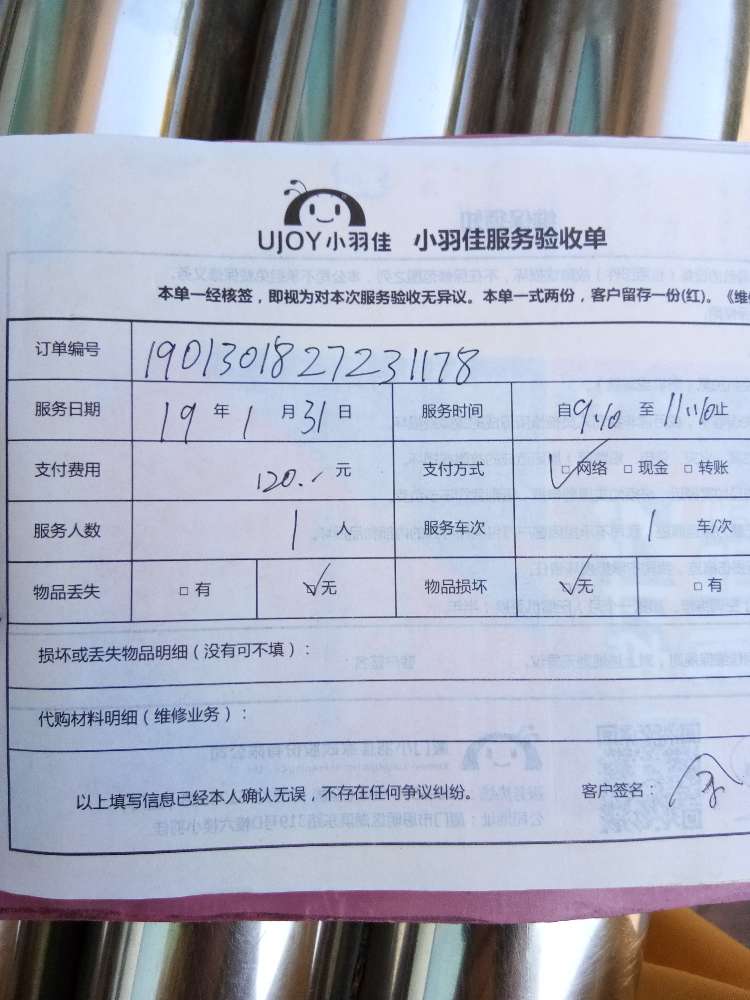 UJOY小羽佳 小羽佳服务验收单
本单一经核签，即视为对本次服务验收无异议。本单一式两份，客户留存一份(红)。《维
订单编号 1901301827231178
服务日期 19 年 1 月 31 日 服务时间 自9:10 至 11:10止
支付费用 120.- 元 支付方式 □网络 □现金 □转账
服务人数 1 人 服务车次 1 车/次
物品丢失 □有 □无 物品损坏 □无 □有
损坏或丢失物品明细（没有可不填）：
代购材料明细（维修业务）：
以上填写信息已经本人确认无误，不存在任何争议纠纷。 客户签名：